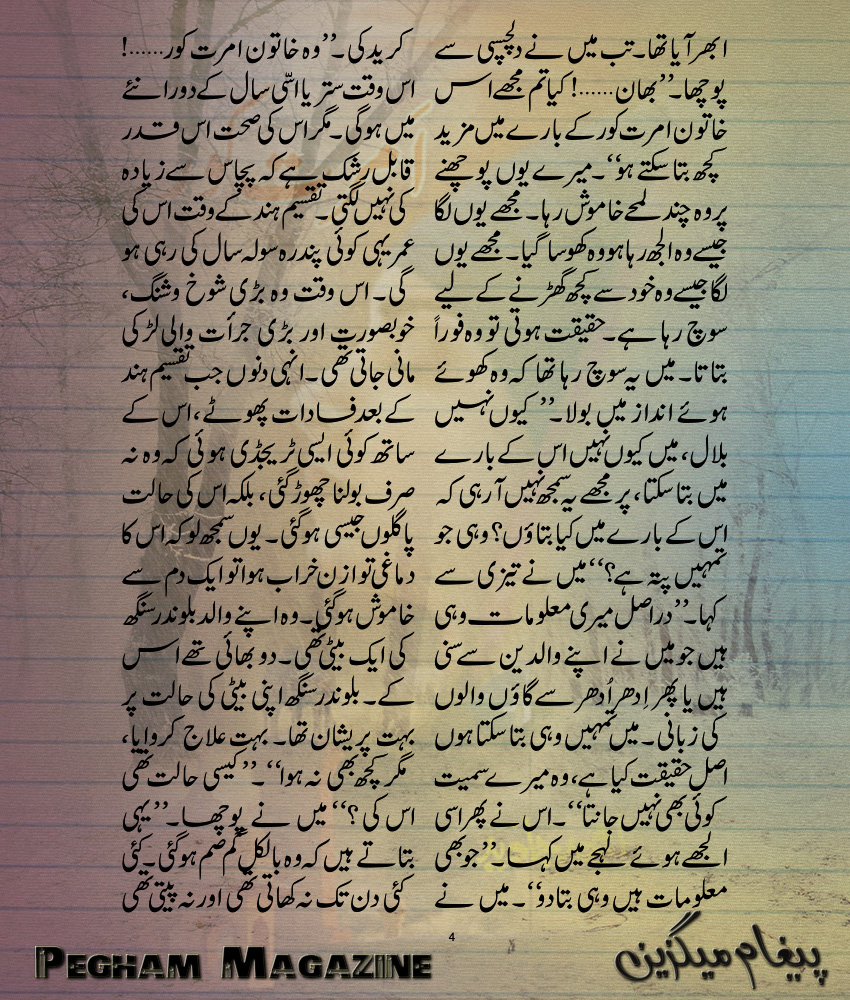 ابھر آیا تھا۔ تب میں نے دلچسپی سے
پوچھا۔’’بھان......! کیا تم مجھے اس
خاتون امرت کور کے بارے میں مزید
کچھ بتا سکتے ہو‘‘۔ میرے یوں پوچھنے
پر وہ چند لمحے خاموش رہا۔ مجھے یوں لگا
جیسے وہ الجھ رہا ہو وہ کھو سا گیا۔ مجھے یوں
لگا جیسے وہ خود سے کچھ گھڑنے کے لیے
سوچ رہا ہے۔ حقیقت ہوتی تو وہ فوراً
بتاتا۔ میں یہ سوچ رہا تھا کہ وہ کھوئے
ہوئے انداز میں بولا۔’’ کیوں نہیں
بلال، میں کیوں نہیں اس کے بارے
میں بتا سکتا، پر مجھے یہ سمجھ نہیں آ رہی کہ
اس کے بارے میں کیا بتاؤں؟ وہی جو
تمہیں پتہ ہے؟‘‘ میں نے تیزی سے
کہا۔’’دراصل میری معلومات وہی
ہیں جو میں نے اپنے والدین سے سنی
ہیں یا پھر اِدھر اُدھر سے گاؤں والوں
کی زبانی۔ میں تمہیں وہی بتا سکتا ہوں
اصل حقیقت کیا ہے، وہ میرے سمیت
کوئی بھی نہیں جانتا‘‘۔ اس نے پھر اسی
الجھے ہوئے لہجے میں کہا۔’’جو بھی
معلومات ہیں وہی بتا دو‘‘۔ میں نے
کرید کی۔’’وہ خاتون امرت کور......!
اس وقت ستر یا اسّی سال کے دورانئے
میں ہو گی۔ مگر اس کی صحت اس قدر
قابل رشک ہے کہ پچاس سے زیادہ
کی نہیں لگتی۔ تقسیم ہند کے وقت اس کی
عمر یہی کوئی پندرہ سولہ سال کی رہی ہو
گی۔ اس وقت وہ بڑی شوخ و شنگ،
خوبصورت اور بڑی جرأت والی لڑکی
مانی جاتی تھی۔ انہی دنوں جب تقسیم ہند
کے بعد فسادات پھوٹے، اس کے
ساتھ کوئی ایسی ٹریجڈی ہوئی کہ وہ نہ
صرف بولنا چھوڑ گئی، بلکہ اس کی حالت
پاگلوں جیسی ہو گئی۔ یوں سمجھ لو کہ اس کا
دماغی توازن خراب ہوا تو ایک دم سے
خاموش ہو گئی۔ وہ اپنے والد بلوندر سنگھ
کی ایک بیٹی تھی۔ دو بھائی تھے اس
کے۔ بلوندر سنگھ اپنی بیٹی کی حالت پر
بہت پریشان تھا۔ بہت علاج کروایا،
مگر کچھ بھی نہ ہوا‘‘۔’’کیسی حالت تھی
اس کی؟‘‘ میں نے پوچھا۔’’یہی
بتاتے ہیں کہ وہ بالکل گم صم ہو گئی۔ کئی
کئی دن تک نہ کھاتی تھی اور نہ پیتی تھی
4
PEGHAM MAGAZINE
پیغام میگزین